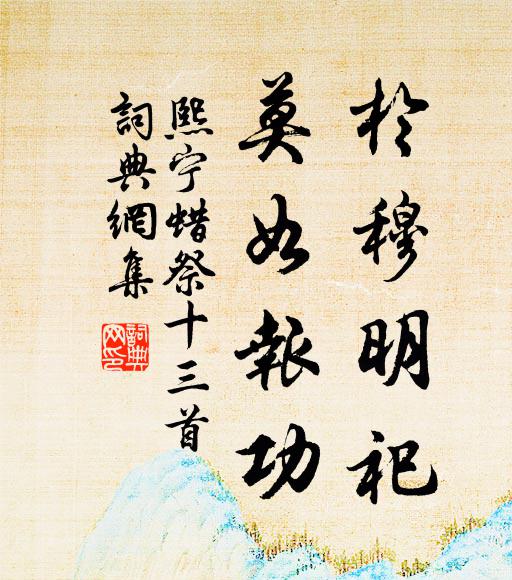 於穆明祀
莫如報功
熙宁蜡祭十三首
詞典網集
詞典網印